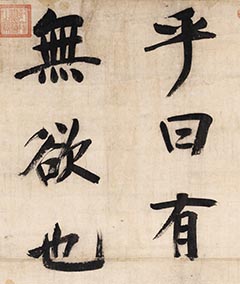 乎曰有
無欲也